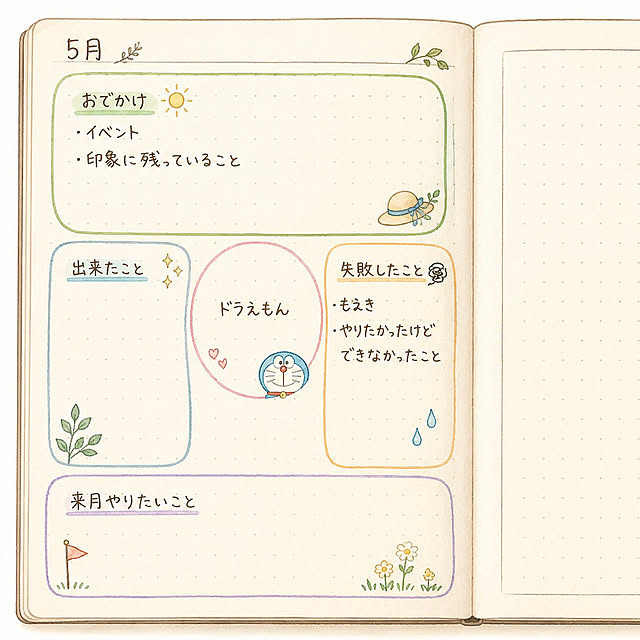 5月
おでかけ
・イベント
・印象に残っていること
出来たこと
ドラえもん
失敗したこと
・もえき
・やりたかったけど
できなかったこと
来月やりたいこと